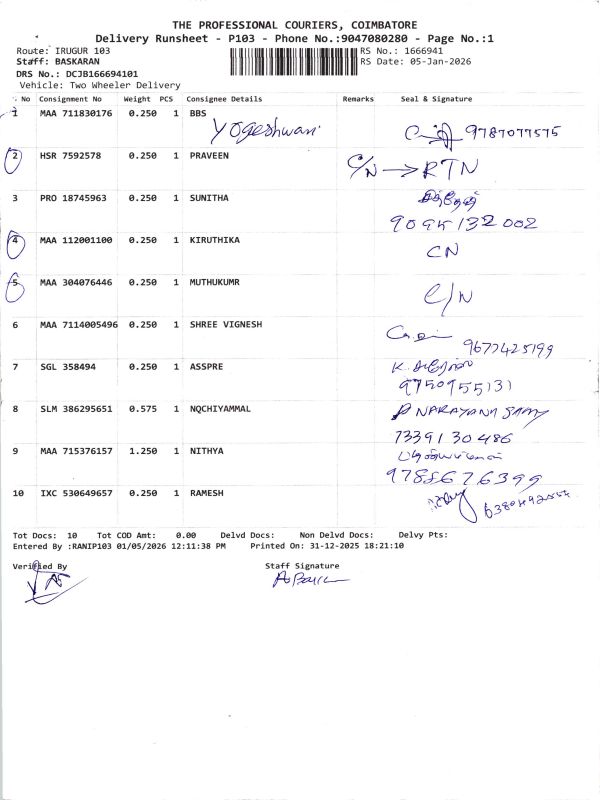 THE PROFESSIONAL COURIERS, COIMBATORE
Delivery Runsheet - P103 - Phone No.:9047080280 - Page No.:1
Route: IRUGUR 103 RS No.: 1666941
Staff: BASKARAN RS Date: 05-Jan-2026
DRS No.: DCJB166694101
Vehicle: Two Wheeler Delivery
No Consignment No Weight PCS Consignee Details Remarks Seal & Signature
1 MAA 711830176 0.250 1 BBS
Yogeshwari 9787077575
2 HSR 7592578 0.250 1 PRAVEEN
C/N → RTN
3 PRO 18745963 0.250 1 SUNITHA
9095132002
4 MAA 112001100 0.250 1 KIRUTHIKA
CN
5 MAA 304076446 0.250 1 MUTHUKUMR
C/N
6 MAA 7114005496 0.250 1 SHREE VIGNESH
9677425199
7 SGL 358494 0.250 1 ASSPRE
9750955131
8 SLM 386295651 0.575 1 NQCHIYAMMAL
P NARAYANA SAMY
7339130486
9 MAA 715376157 1.250 1 NITHYA
10 IXC 530649657 0.250 1 RAMESH
Tot Docs: 10 Tot COD Amt: 0.00 Delvd Docs: Non Delvd Docs: Delvy Pts:
Entered By :RANIP103 01/05/2026 12:11:38 PM Printed On: 31-12-2025 18:21:10
Verified By Staff Signature